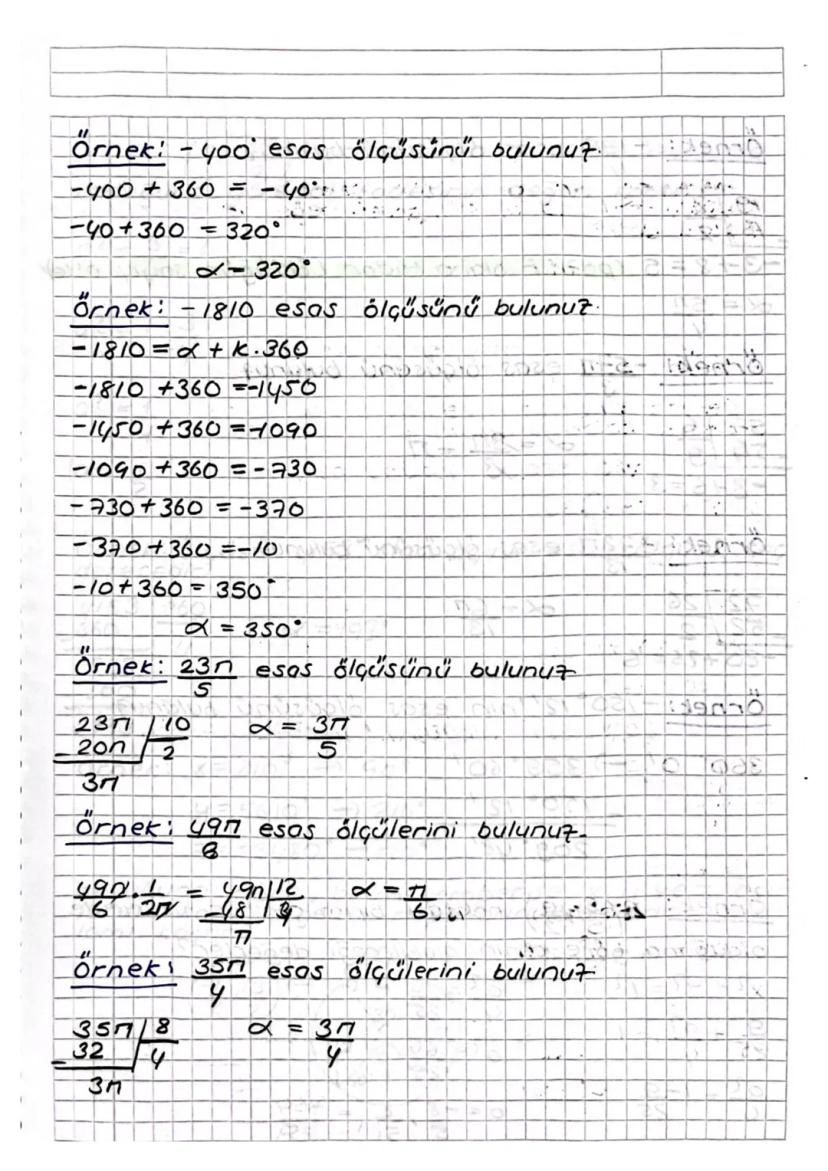 Örnek: -400° esas ölçüsünü bulunuz.
-400 + 360 = -40°
-40+360 = 320°
α - 320°
Örnek: -1810 esas ölçüsünü bulunuz.
-1810 = α + K.360
-1810 +360 =-1450
-1450 +360 =-1090
-1090+360 = -730
-730+360 = -370
-370+360 =-10
-10+360 = 350°
α = 350°
Örnek: 23π/5 esas ölçüsünü bulunuz
23π | 10 α = 3π/5
- 20π | 2
3π
Örnek: 49π/6 esas ölçülerini bulunuz.
49π/6 . 1/2π = 49π | 12 α = π/6
-48 | 4
π
Örnek: 35π/4 esas ölçülerini bulunuz.
35π | 8 α = 3π/4
- 32 | 4
3π